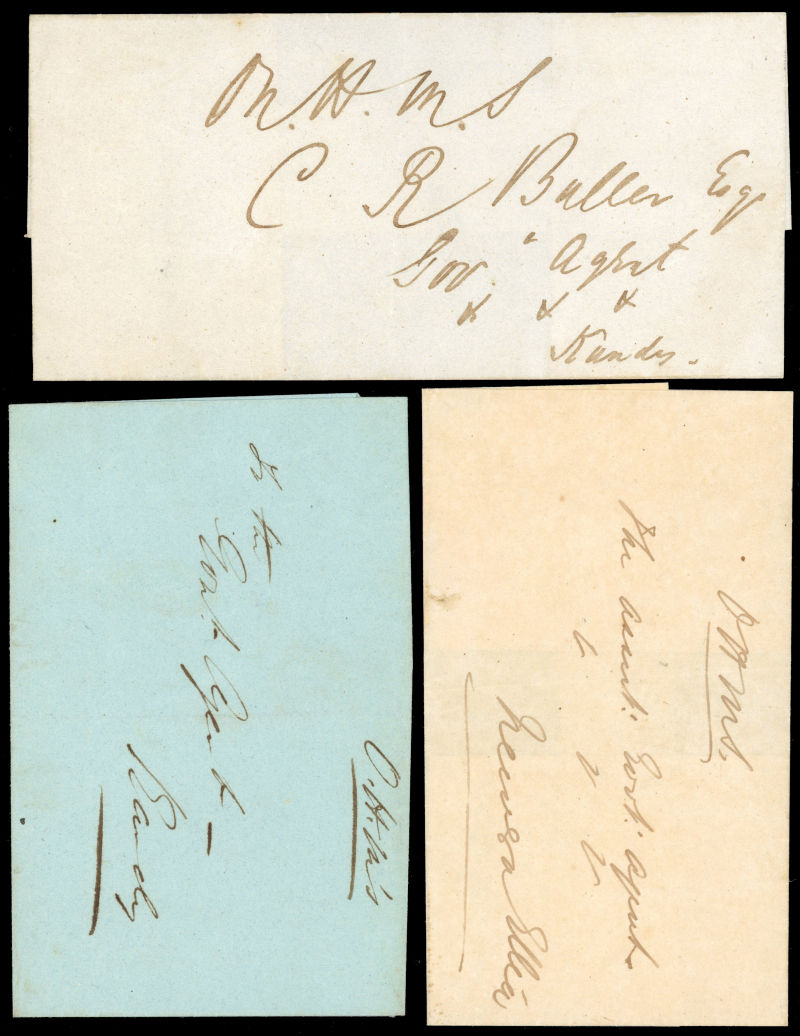 On. H. M. S
C R Buller Esqr
Gov. " Agent
& & &
Kandy.
O. H. M's
To the
Govt. Agent —
Kandy
O H M S.
The assist: Govt: agent.
Newera Ellia